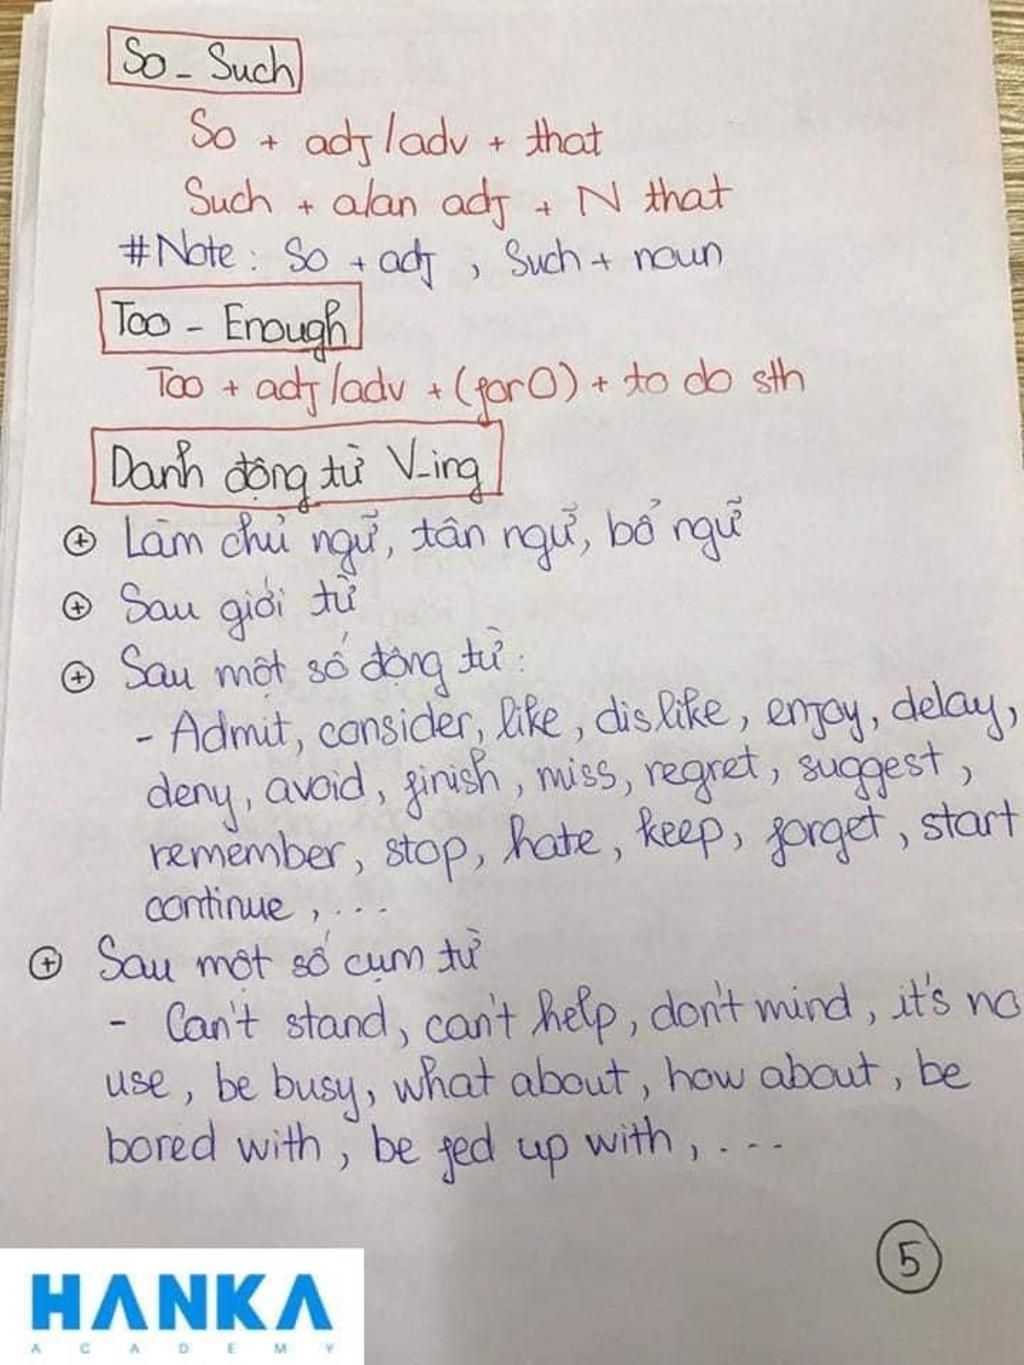 So - Such
So + adj/adv + that
Such + a/an adj + N that
#Note: So + adj, Such + noun
Too - Enough
Too + adj/adv + (for O) + to do sth
Danh động từ V-ing
⊕ Làm chủ ngữ, tân ngữ, bổ ngữ
⊕ Sau giới từ
⊕ Sau một số động từ:
- Admit, consider, like, dislike, enjoy, delay,
deny, avoid, finish, miss, regret, suggest,
remember, stop, hate, keep, forget, start
continue, ...
⊕ Sau một số cụm từ
- Can't stand, can't help, don't mind, it's no
use, be busy, what about, how about, be
bored with, be fed up with, ....
5
HANKA
ACADEMY